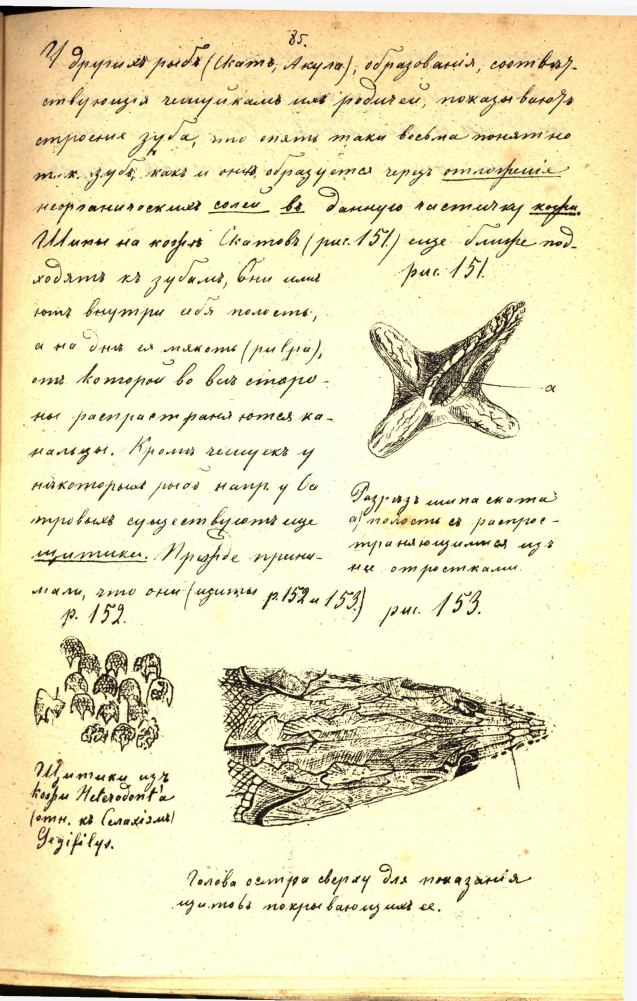 85.
У другихъ рыбъ (Скатъ, Акула), образованія, соотвѣт-
ствующія чешуйкамъ ихъ родичей, показываютъ
строеніе зуба, что опять таки весьма понятно
т. к. зубъ, какъ и онѣ, образуется черезъ отложеніе
неорганическихъ солей въ данную частичку кожи.
Шипы на кожѣ Скатовъ (рис. 151.) еще ближе под-
ходятъ къ зубамъ, Они имѣ
ютъ внутри себя полость,
а на днѣ ея мякоть (pulpa),
отъ которой во всѣ сторо-
ны распрастраняются ка-
нальцы. Кромѣ чешуекъ у
нѣкоторыхъ рыбъ напр. у Ос
тровыхъ существуютъ еще
щитики. Прежде прини-
мали, что они (щиты р. 152 и 153.)
рис. 151.
а
Разрѣзъ шипа ската
а) полость съ распрос-
траняющимися изъ
нее отростками.
р. 152.
Щитики изъ
кожи Heterodont'а
(отн. къ Селахіямъ)
рис. 153.
Голова остра сверху для показанія
щитовъ покрывающихъ ее.